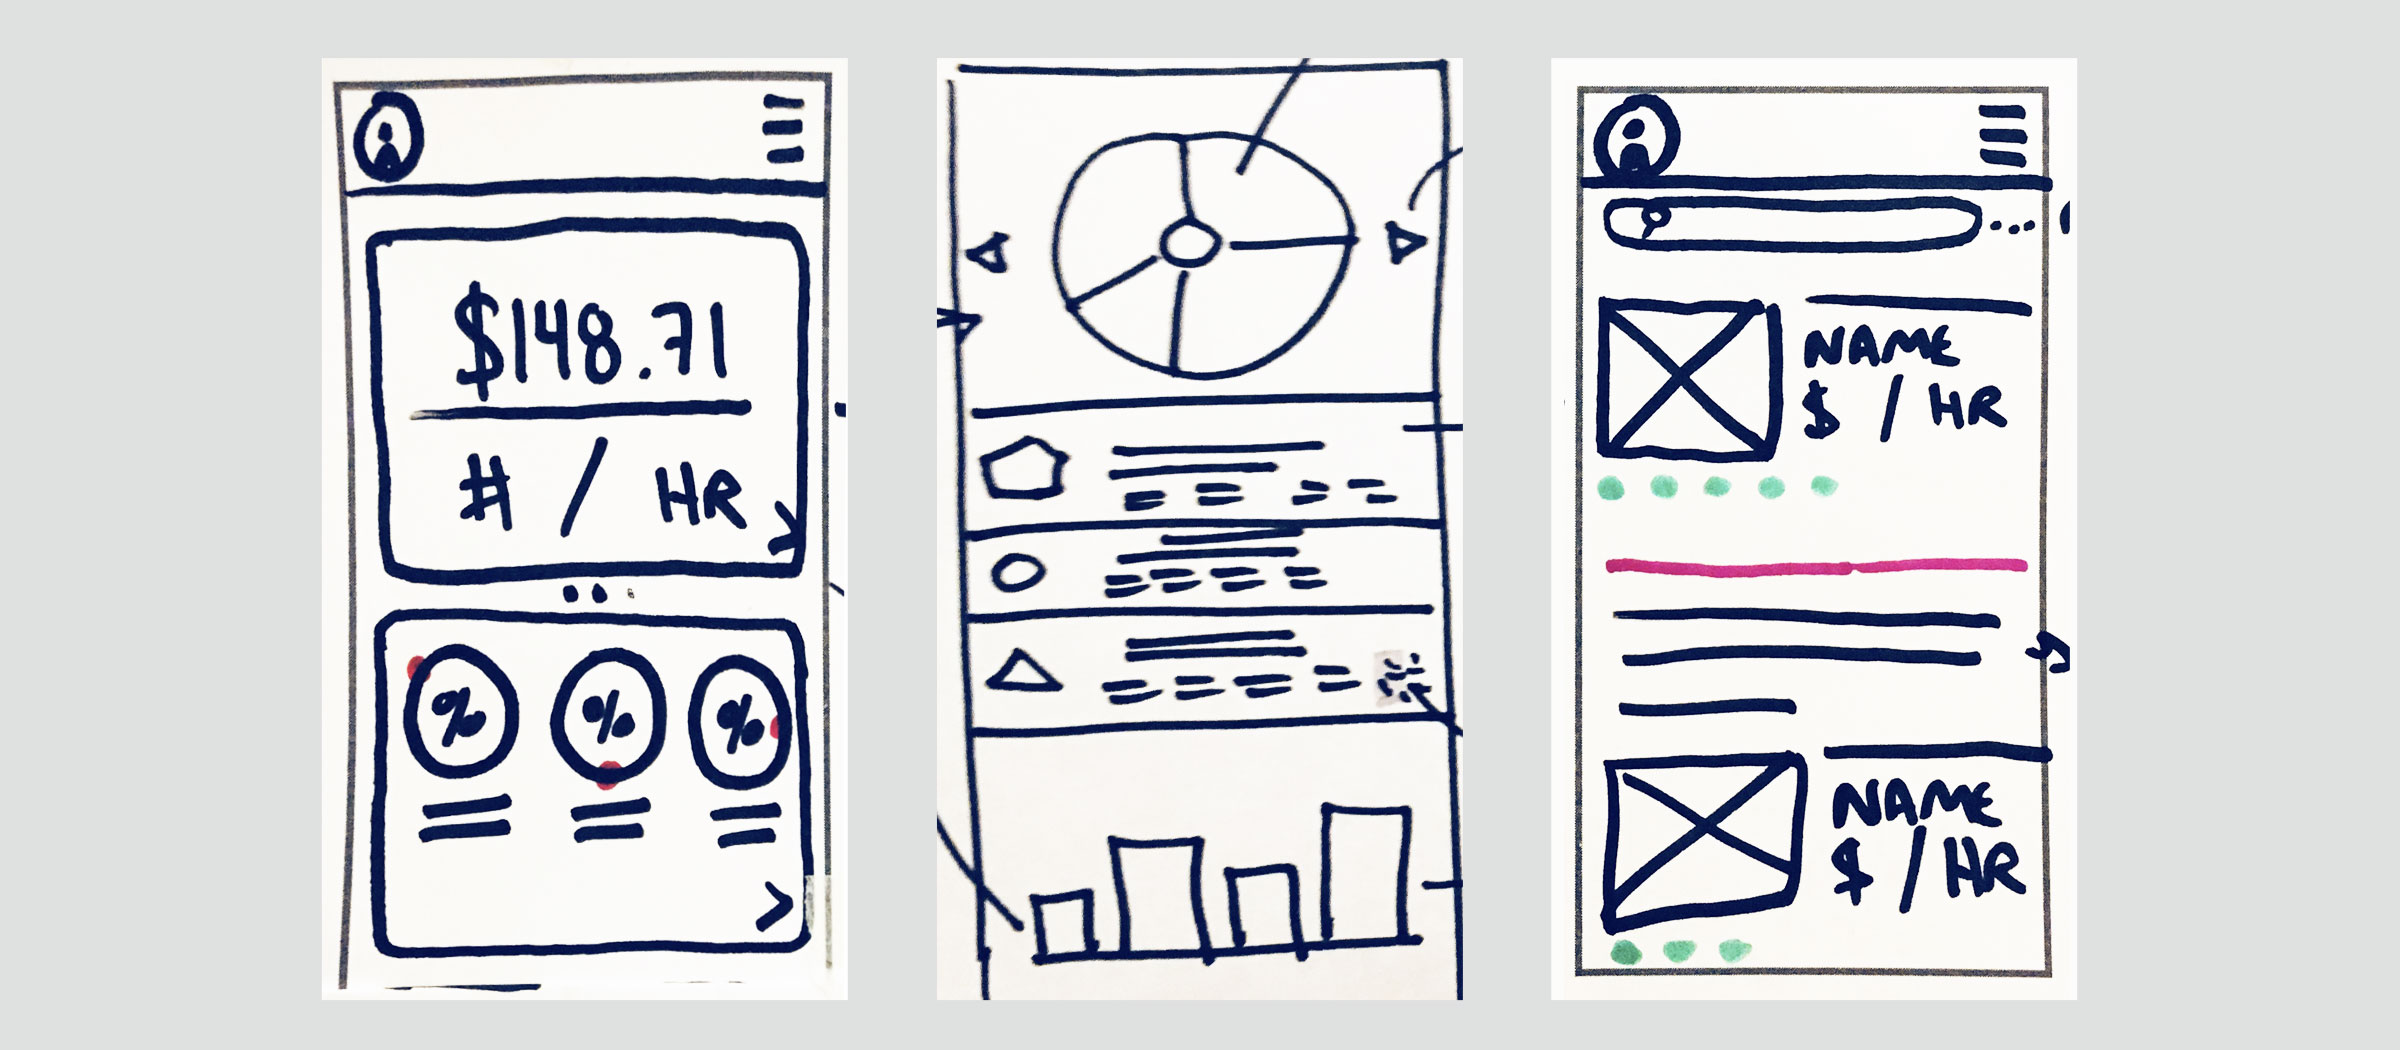 $148.71
# / HR
% % %
NAME
$ / HR
NAME
$ / HR